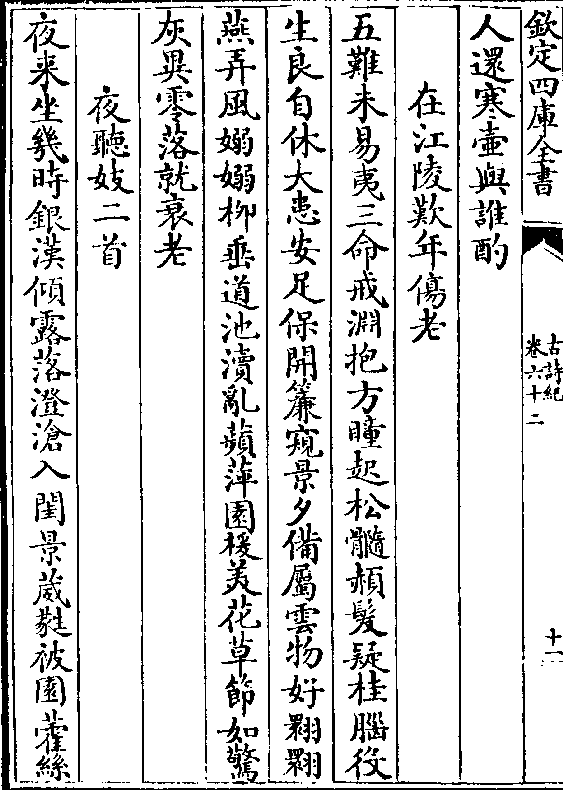 欽定四庫全書
古詩紀
卷六十二
十一
人還寒壺與誰酌
在江陵歎年傷老
五難未易夷三命戒淵抱方瞳起松髓頳髮疑桂腦役
生良自休大患安足保開簾窺景夕備屬雲物好翾翾
燕弄風嫋嫋柳垂道池瀆亂蘋萍園楥美花草節如驚
灰異零落就衰老
夜聽妓二首
夜来坐幾時銀漢傾露落澄滄入閨景葳蕤被園藿絲